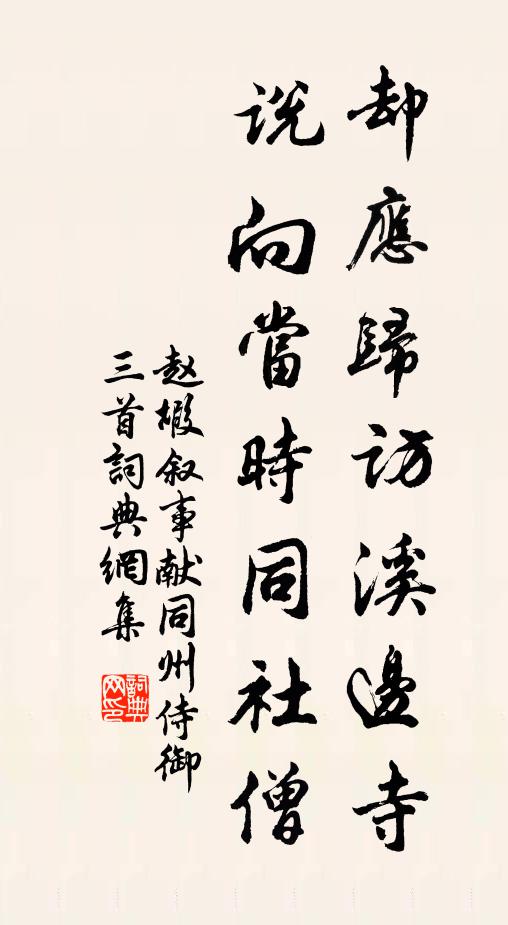 却應歸訪溪邊寺
説向當時同社僧
赵嘏叙事献同州侍御
三首詞典網集
詞典网印